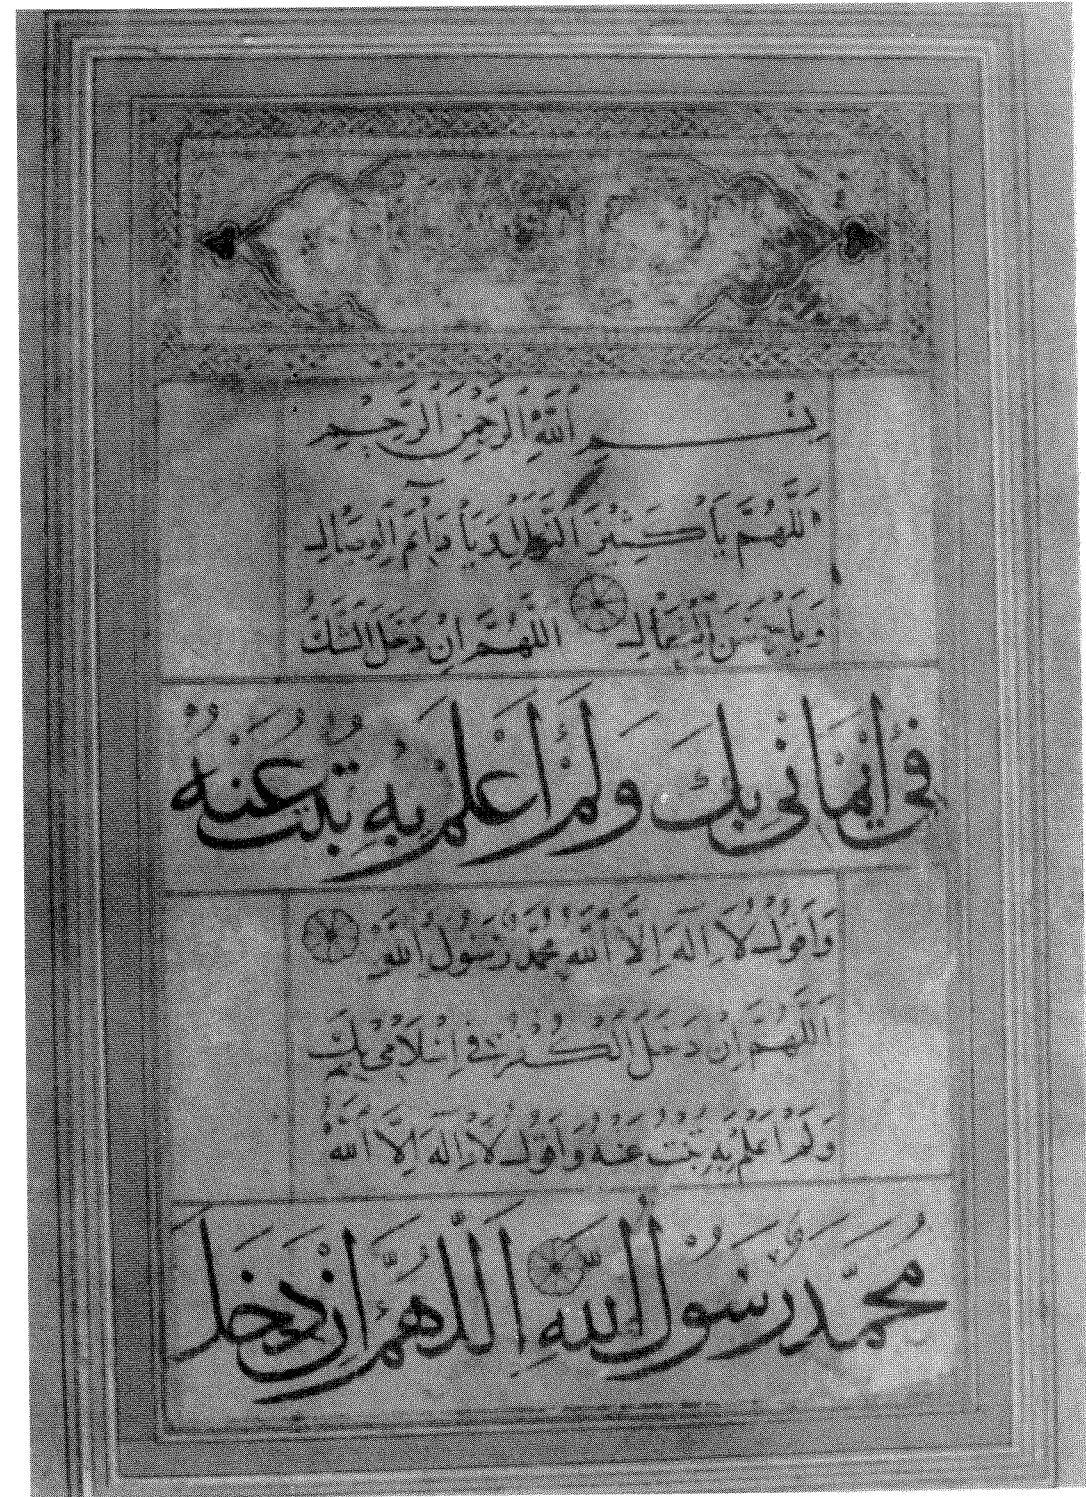 بِسْمِ اللَّهِ الرَّحْمَنِ الرَّحِيمِ
اَللَّهُمَّ يَا كَثِيرَ النَّوَالِ وَيَا دَائِمَ الْوِصَالِ
وَيَا حَسَنَ الْفِعَالِ اَللَّهُمَّ اِنْ دَخَلَ الشَّكُّ
فِي اِيمَانِي بِكَ وَلَمْ اَعْلَمْ بِهِ تُبْتُ عَنْهُ
وَاَقُولُ لَا اِلَهَ اِلَّا اللَّهُ مُحَمَّدٌ رَسُولُ اللَّهِ
اَللَّهُمَّ اِنْ دَخَلَ الْكُفْرُ فِي اِسْلَامِي بِكَ
وَلَمْ اَعْلَمْ بِهِ تُبْتُ عَنْهُ وَاَقُولُ لَا اِلَهَ اِلَّا اللَّهُ
مُحَمَّدٌ رَسُولُ اللَّهِ اَللَّهُمَّ اِنْ دَخَلَ